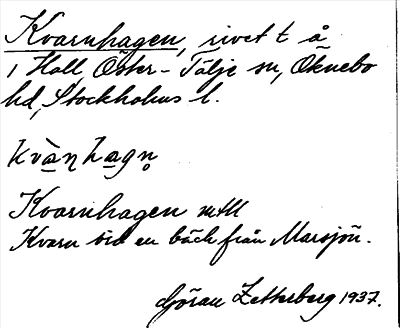 Kvarnhagen, rivet t å
i Hall, Öster-Tälje sn, Öknebo
hd, Stockholms l.
kvànhagn̥
Kvarnhagen mtll
Kvarn vid en bäck från Marsjön.
Göran Zetterberg 1937.